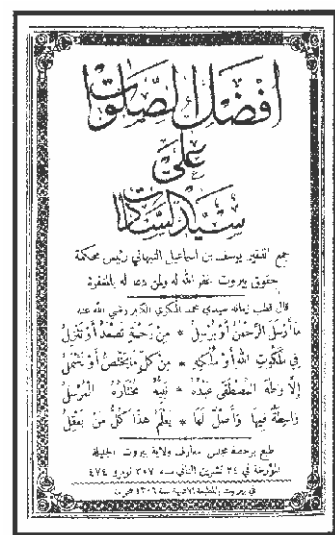 افضل الصلوات
على
سيد السادات
جمع الفقير يوسف بن اسماعيل النبهاني رئيس محكمة
حقوق بيروت غفر الله له ولمن دعا له بالمغفرة
قال قطب زمانه سيدي محمد البكري الكبير رضي الله عنه
مَا أَرْسَلَ الرَّحْمٰنُ أَوْ يُرْسِلُ * مِنْ رَحْمَةٍ تَصْعَدُ أَوْ تَنْزِلُ
فِي مَلَكُوتِ اللهِ أَوْ مُلْكِهِ * مِنْ كُلِّ مَا يَخْتَصُّ أَوْ يَشْمَلُ
إِلَّا وَطٰهَ الْمُصْطَفَى عَبْدُهُ * نَبِيُّهُ مُخْتَارُهُ الْمُرْسَلُ
وَاسِطَةٌ فِيهَا وَأَصْلٌ لَهَا * يَعْلَمُ هٰذَا كُلُّ مَنْ يَعْقِلُ
طبع برخصة مجلس معارف ولاية بيروت الجليلة
المؤرخة في ٢٤ تشرين الثاني سنه ٣٠٧ نومرو ٤٧٤
في بيروت بالمطبعة الادبية سنة ١٣٠٩ هجرية